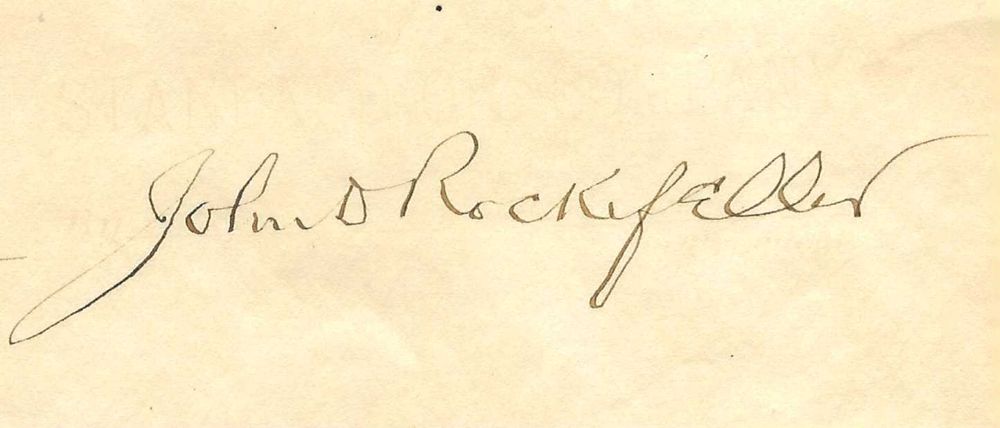 John D Rockefeller